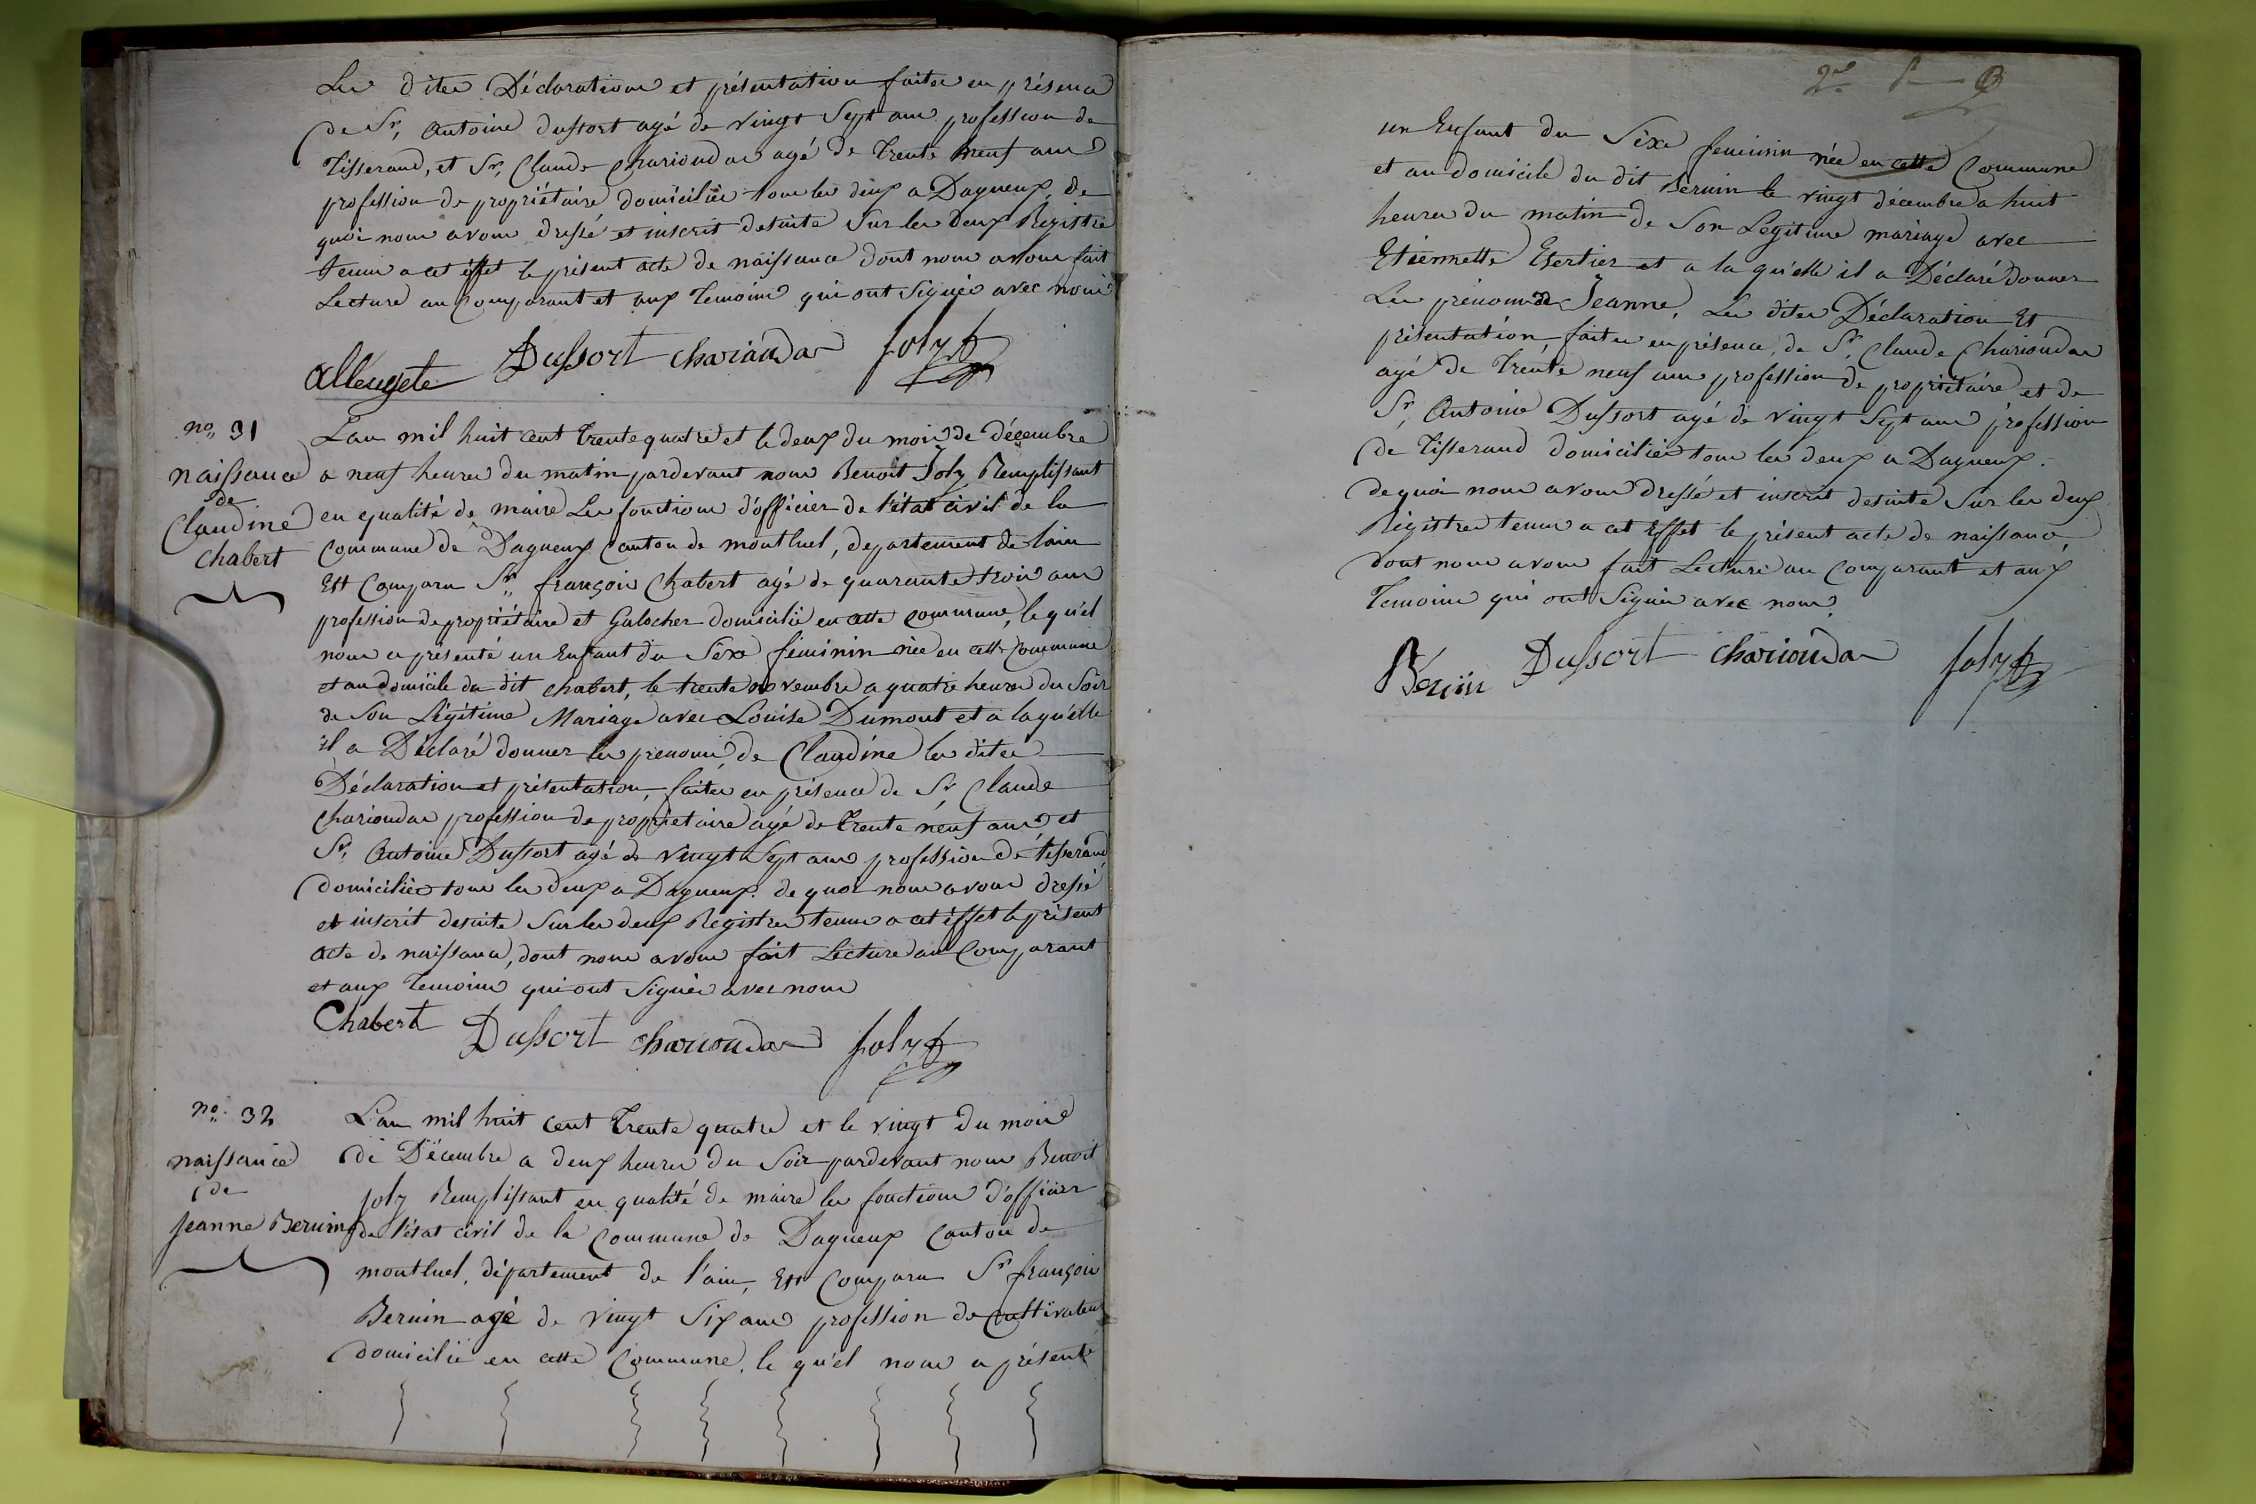 Les dites Déclarations et présentation faites en présence
de Sr, Antoine dussort agé de vingt Sept ans profession de
Tisserand, et Sr, Claude Chariondas agé de trente neuf ans
profession de propriétaire domiciliés tous les deux a Dagneux, de
quoi nous avons dressé et inscrit desuite Sur les deux Registre
tenus a cet éffet le présent acte de naissance dont nous avons fait
Lecture au Comparant et aux temoins qui ont Signés avec nous
Dussort chariondas Joly
no, 31
naissance
de
Claudine
Chabert
L'an mil huit cent trente quatre et le deux du mois de décembre
a neuf heures du matin pardevant nous Benoit Joly Remplissant
en qualité de maire Les fonctions d'officier de l'état civil de la
Commune de Dagneux Canton de montluel, departement de lain
Est Comparu Sr, françois Chabert agé de quarante trois ans
profession de propriétaire et Galocher domicilié en cette commune, le qu'el
nous a présenté un Enfant du Séxe féminin née en cette Commune
et au domicile du dit chabert, le trente novembre a quatre heures du Soir
de Son Légitime Mariage avec Louise Dumont et a laqu'elle
il a Déclaré donner les prenoms de Claudine les dites
Déclaration et présentation, faites en présence de Sr, Claude
Chariondas profession de propriétaire agé de trente neuf ans et
Sr, Antoine Dussort agé de vingt Sept ans profession de tisserand
domiciliés tous les deux a Dagneux. de quoi nous avons dressé
et inscrit desuite Sur les deux Registres tenus a cet éffet le présent
acte de naissance, dont nous avons fait Lecture au Comparant
et aux temoins qui ont Signés avec nous
Chabert Dussort chariondas Joly
no. 32
naissance
de
Jeanne Beruin
L'an mil huit cent trente quatre et le vingt du mois
de Décembre a deux heures du Soir pardevant nous Benoit
Joly Remplissant en qualité de maire les fonctions d'officier
de l'état civil de la Commune de Dagneux Canton de
montluel, département de l'ain, Est Comparu Sr françois
Beruin agé de vingt Six ans profession de Cultivateur
domicilié en cette Commune, le qu'el nous a présenté
un Enfant du Séxe feminin née en cette Commune
et au domicile du dit Beruin le vingt décembre a huit
heures du matin de Son Légitime mariage avec
Etiennette Esertier et a la qu'elle il a Déclaré Donner
Les prénoms de Jeanne, Les dites Déclaration Et
présentation faites en présence, de Sr, Claude Chariondas
agé de trente neuf ans profession de propriétaire et de
Sr, Antoine Dussort agé de vingt Sept ans profession
de Tisserand domiciliés tous les deux a Dagneux.
de quoi nous avons dressé et inscrit desuite Sur les deux
Régistres tenus a cet Effet le présent acte de naissance,
dont nous avons fait Lecture au Comparant et aux
temoins qui ont Signés avec nous
Beruin Dussort chariondas Joly